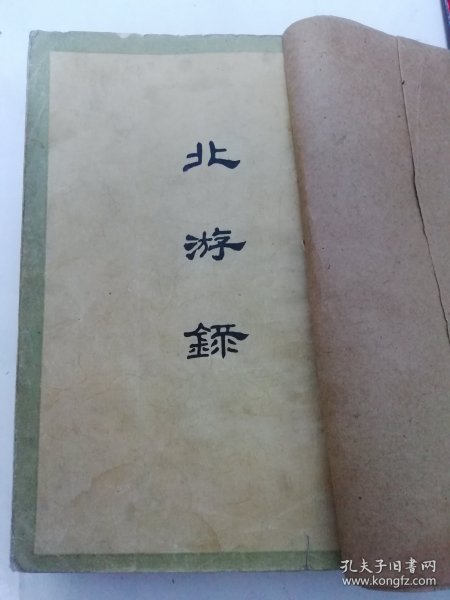 北游録
孔夫子旧书网
www.kongfz.com